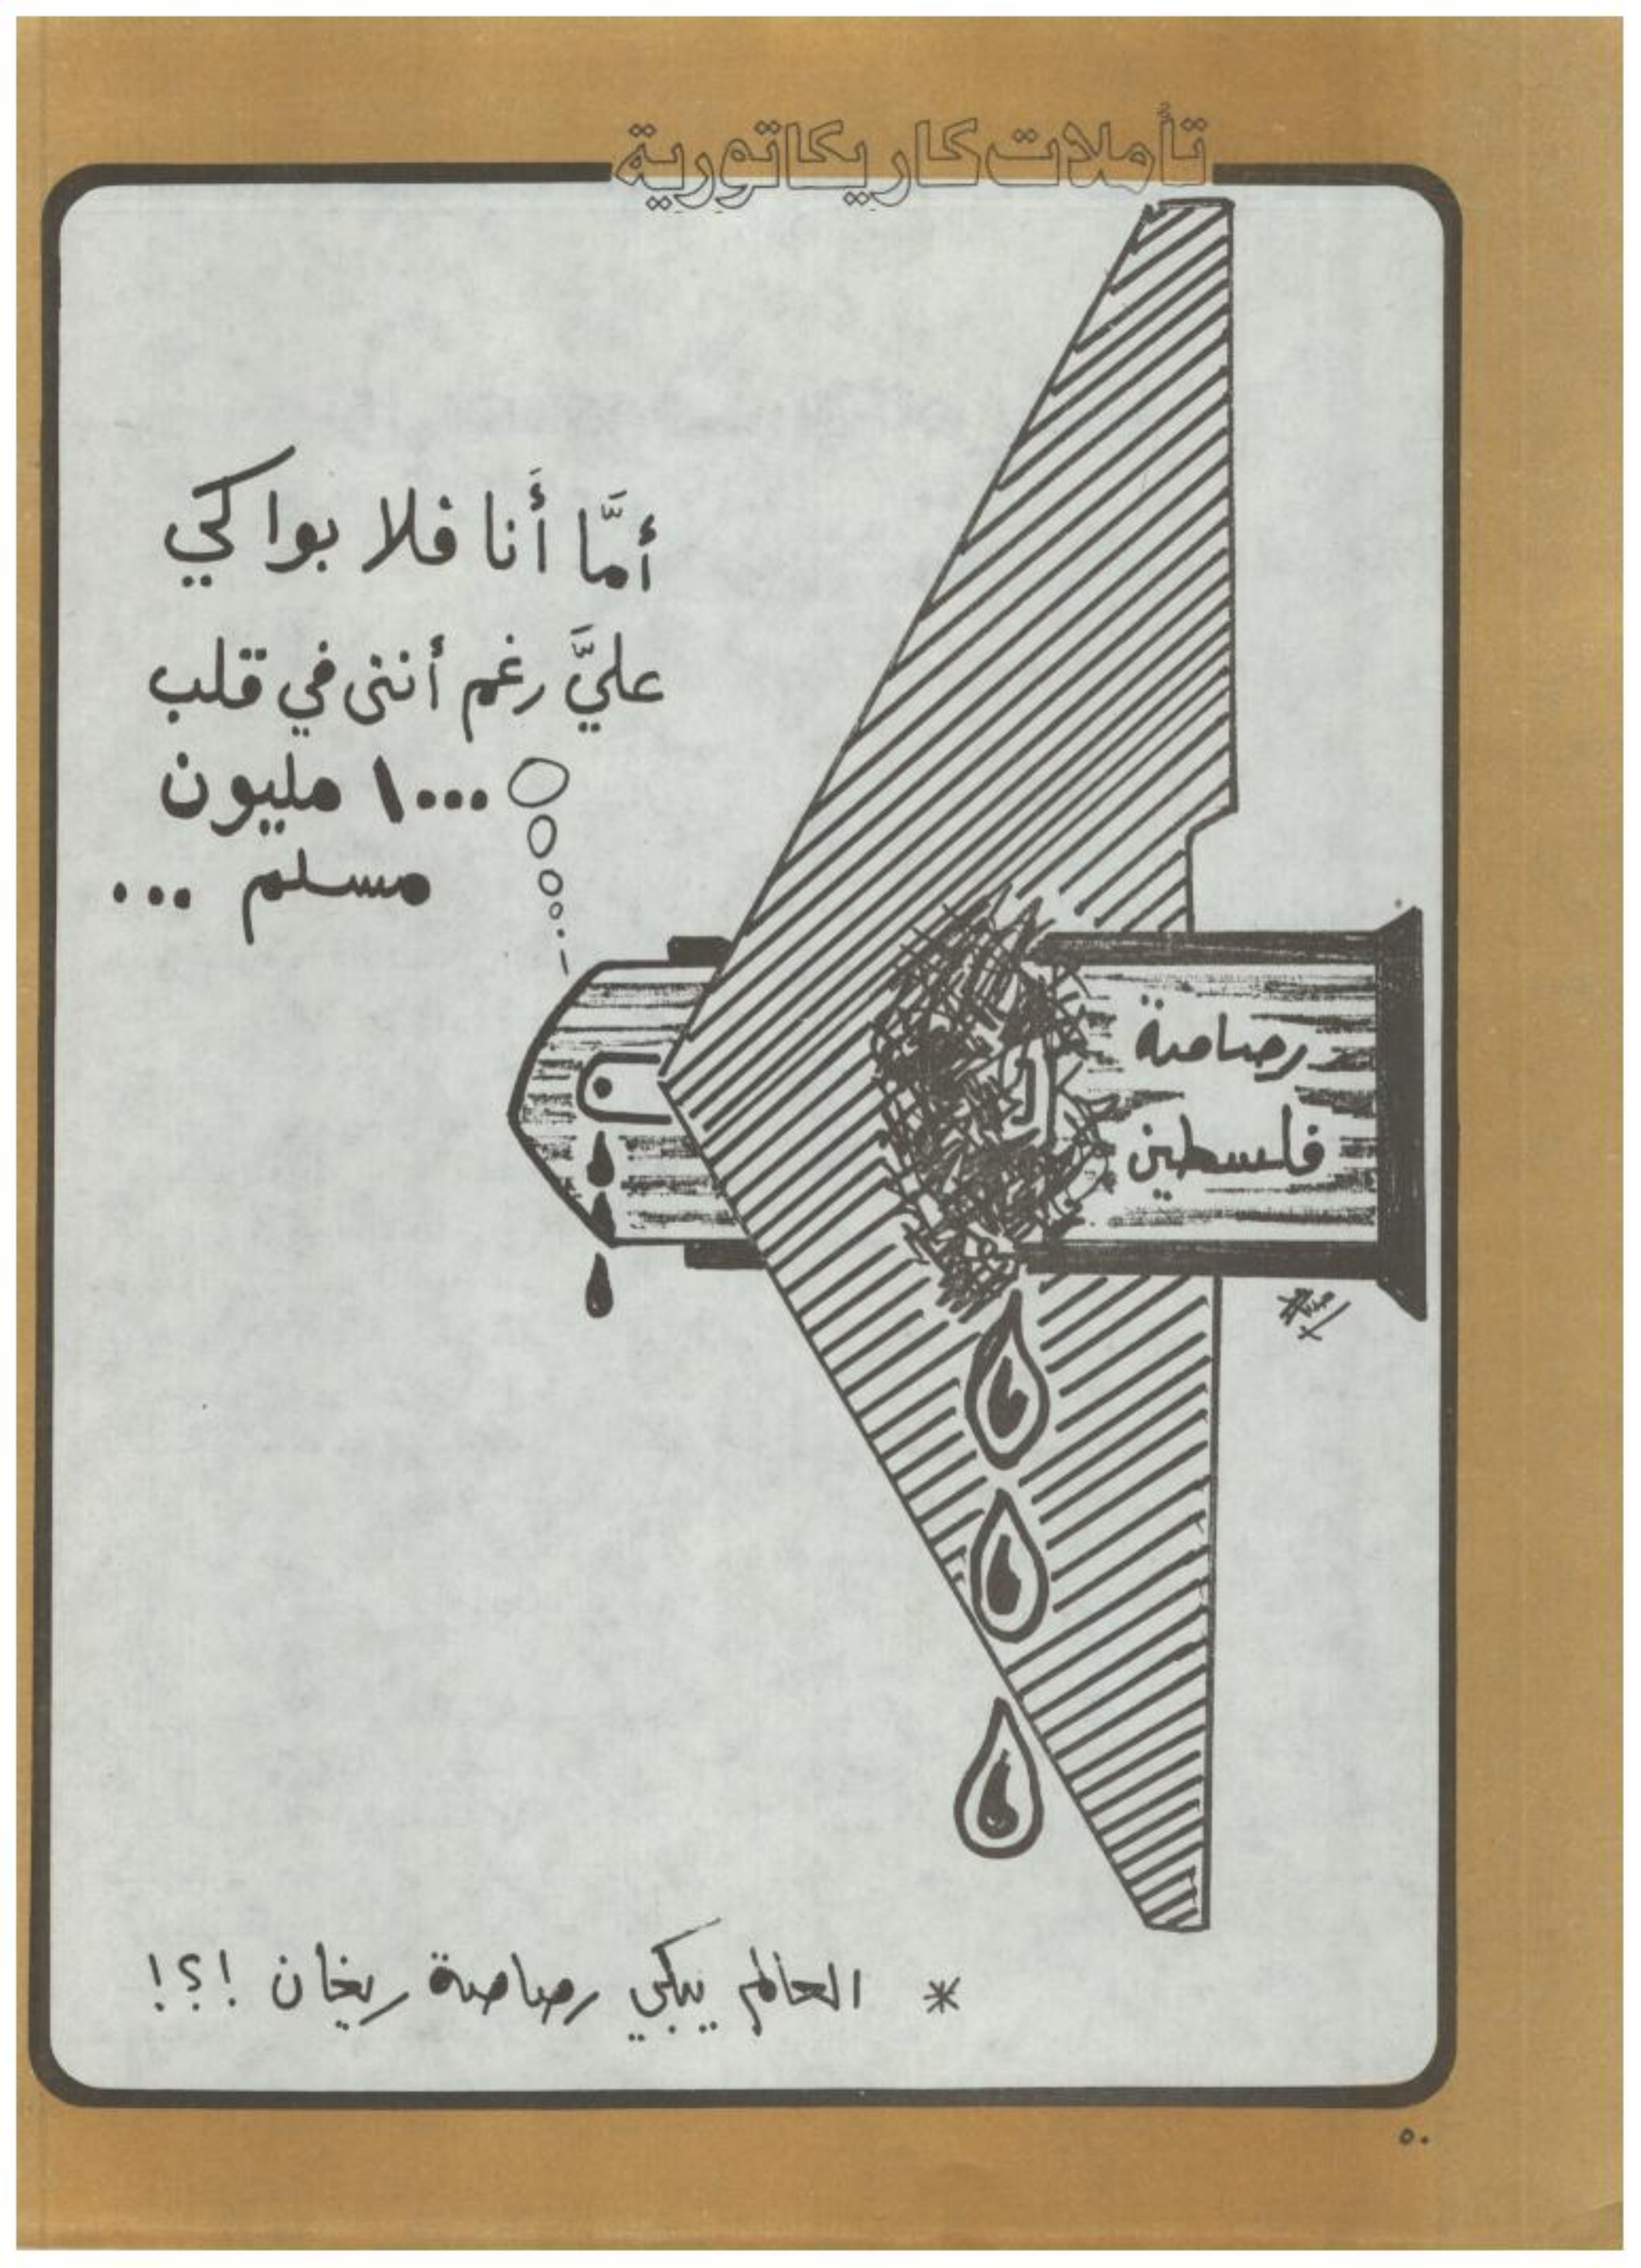 تأملات كاريكاتورية
أمَّا أَنا فلا بواكي
عليَّ رغم أنني في قلب
١٠٠٠ مليون
مسلم ...
رصاصة
فلسطين
* العالم يبكي رصاصة ريغان !؟!
٥٠